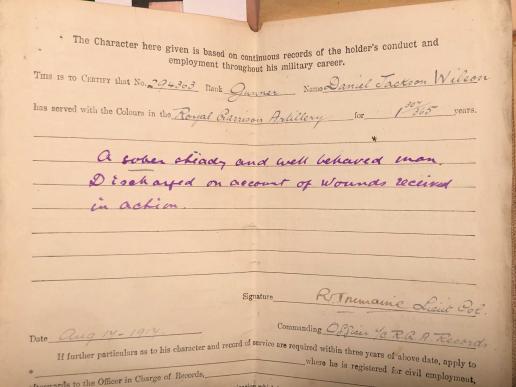 The Character here given is based on continuous records of the holder's conduct and
employment throughout his military career.
THIS IS TO CERTIFY that No. 294303 Rank Gunner Name Daniel Jackson Wilson
has served with the Colours in the Royal Garrison Artillery for 1 307/365 years.
A sober steady and well behaved man.
Discharged on account of wounds received
in action.
Signature Lieut Col.
Commanding Officer i/c R.G.A Records
Date Aug 14 -
If further particulars as to his character and record of service are required within three years of above date, apply to
where he is registered for civil employment,
to the Officer in Charge of Records,